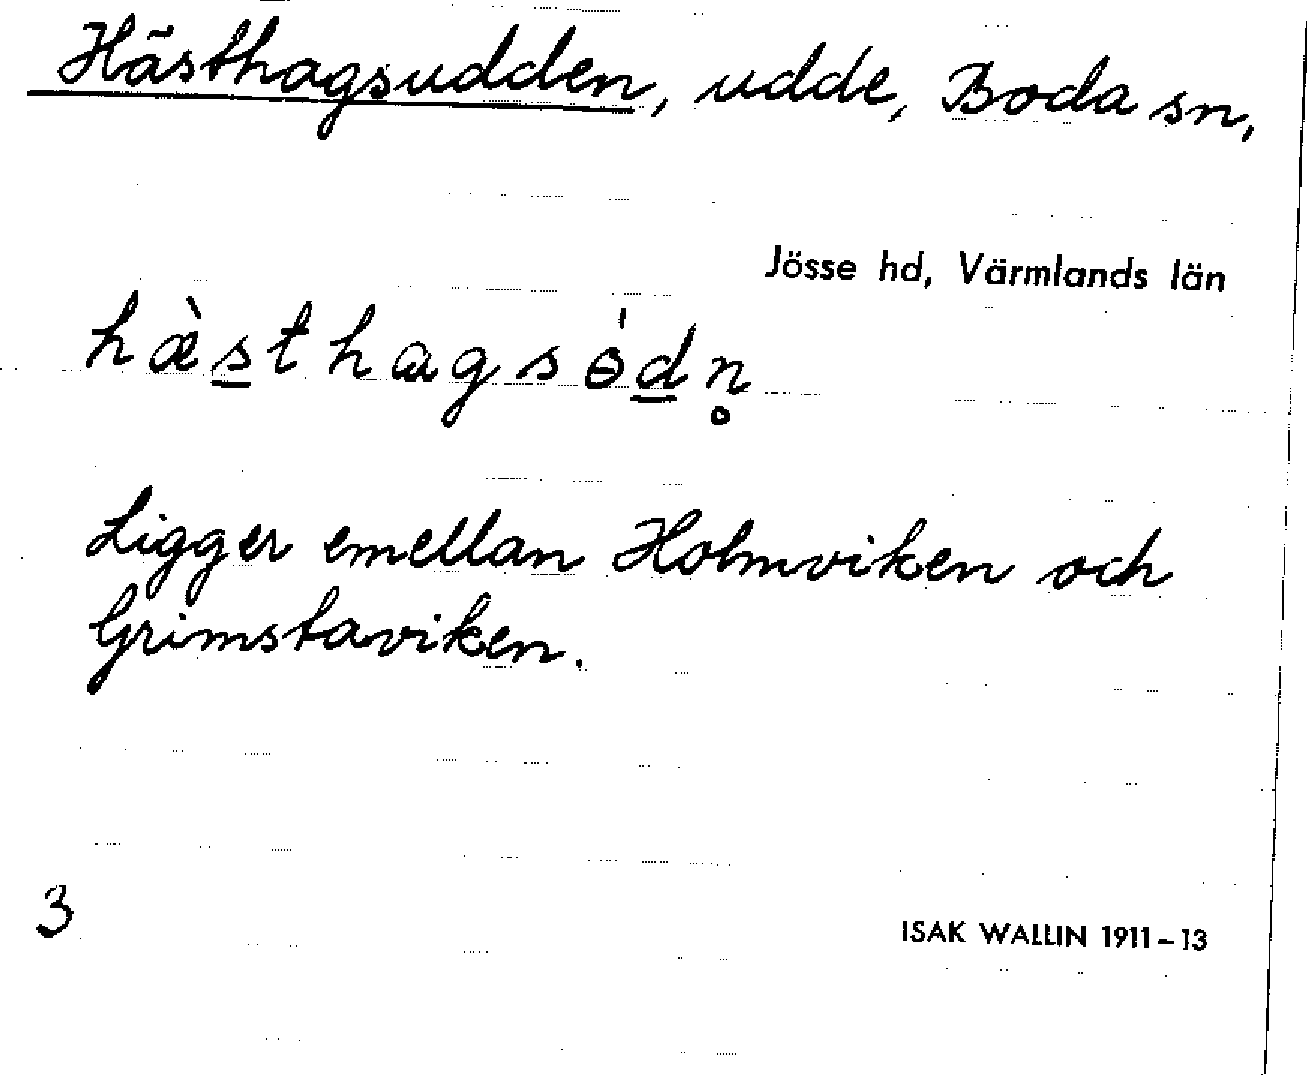 Hästhagsudden, udde, Boda sn,
Jösse hd, Värmlands län
hæ̀s̲thagsɵ́d̲n̥
Ligger emellan Holmviken och
Grimstaviken.
3
ISAK WALLIN 1911–13